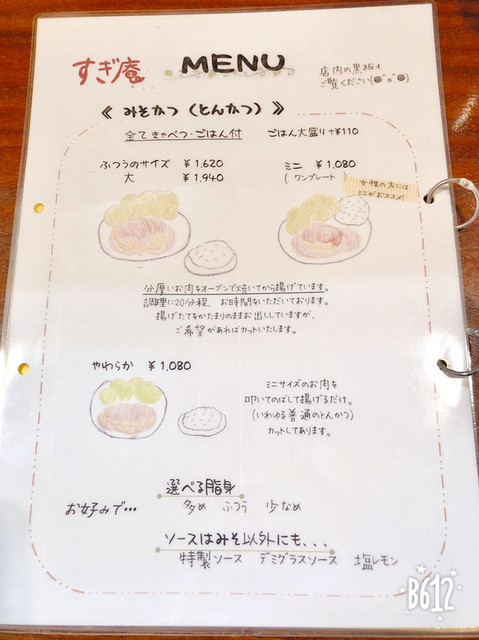 すぎ庵 MENU
店内の黒板も
ご覧ください(●°o°●)
《 みそかつ (とんかつ) 》
全て きゃべつ・ごはん付 ごはん大盛り +¥110
ふつうのサイズ ¥1,620
大 ¥1,940
ミニ ¥1,080
(ワンプレート)
女性の方には
ミニがおススメ!
分厚いお肉をオーブンで焼いてから揚げています。
調理に20分程、お時間をいただいております。
揚げたてをかたまりのままお出ししていますが、
ご希望があればカットいたします。
やわらか ¥1,080
ミニサイズのお肉を
叩いてのばして揚げるだけ。
(いわゆる普通のとんかつ)
カットしてあります。
お好みで…
選べる脂身
多め ふつう 少なめ
ソースはみそ以外にも、、、
特製ソース デミグラスソース 塩レモン
B612